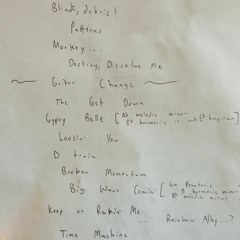 Blind, debris!
Patterns
Monkey...
Destiny, Dissolve Me
Guitar Change
The Get Down
Gypsy Belle [Ab melodic minor
Eb harmonic is → Eb hungarian]
Loosin' You
D train
Broken Momentum
Big Wave Comin' [Gm Pentatonic
D harmonic minor
melodic minor
Keep on Rockin' Me
... Rainbow Alley...?
Time Machine